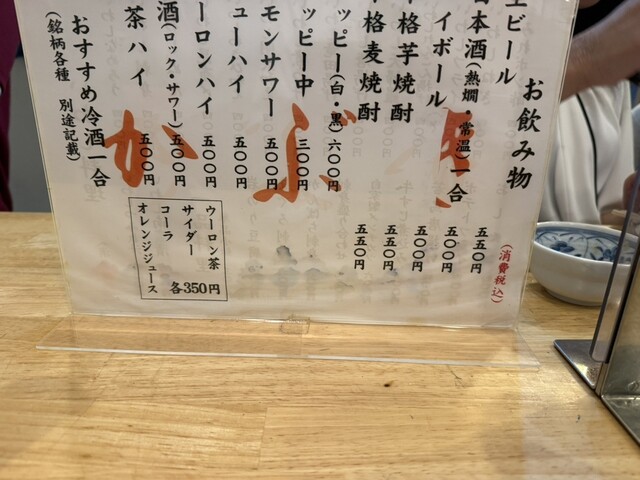 お飲み物
(消費税込)
生ビール 五五〇円
日本酒(熱燗・常温)一合 五〇〇円
イボール 五〇〇円
格芋焼酎 五五〇円
格麦焼酎 五五〇円
ッピー(白・黒) 六〇〇円
ッピー中 三〇〇円
モンサワー 五〇〇円
ューハイ 五〇〇円
ーロンハイ 五〇〇円
酒(ロック・サワー) 五〇〇円
茶ハイ 五〇〇円
おすすめ冷酒一合
(銘柄各種 別途記載)
ウーロン茶
サイダー
コーラ
オレンジジュース
各350円
か
ぶ